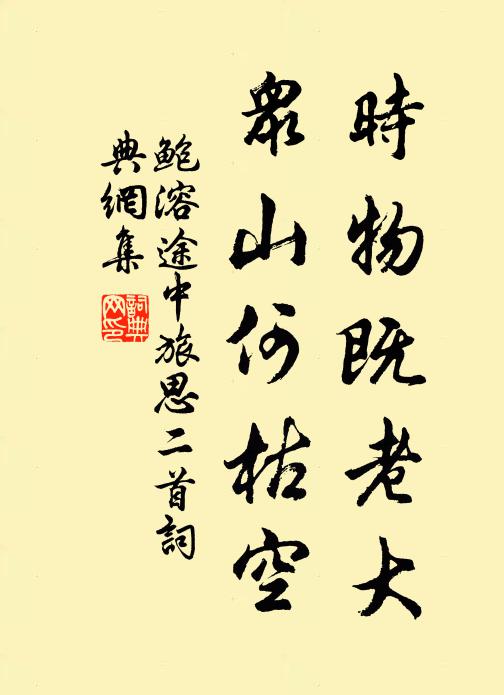 時物既老大
眾山何枯空
鮑溶途中旅思二首詞
典網集
詞典
网印